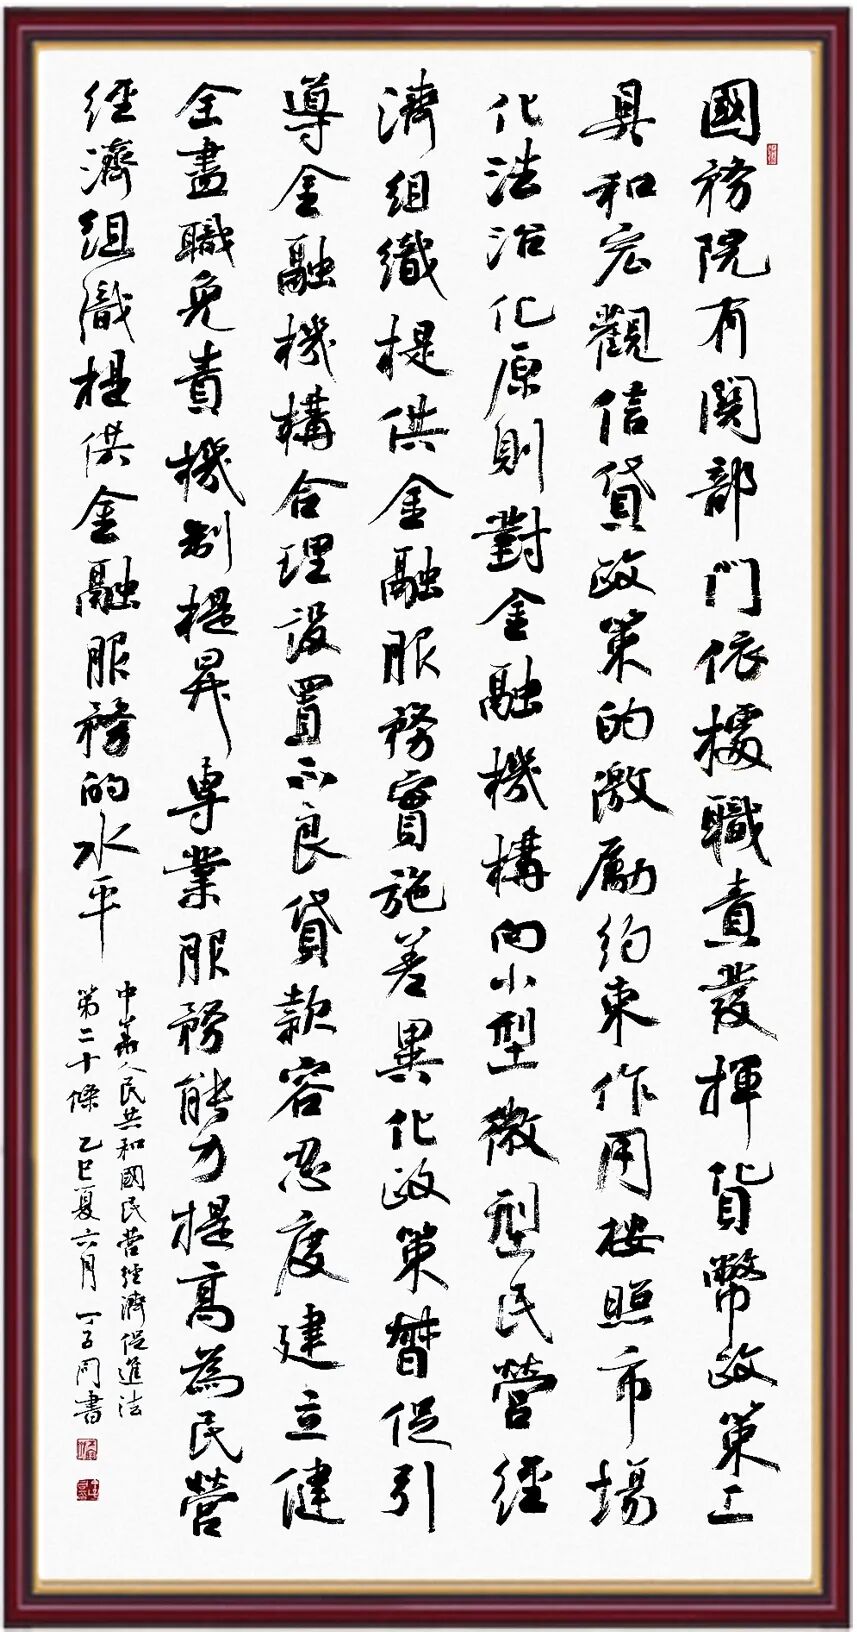 國務院有関部門依據職責發揮貨幣政策工
具和宏觀信貸政策的激勵約束作用按照市場
化法治化原則對金融機構向小型微型民營經
濟組織提供金融服務實施差異化政策督促引
導金融機構合理設置不良貸款容忍度建立健
全盡職免責機制提昇專業服務能力提高為民營
經濟組織提供金融服務的水平
中華人民共和國民營經濟促進法
第二十條 乙巳夏六月 丁子同書